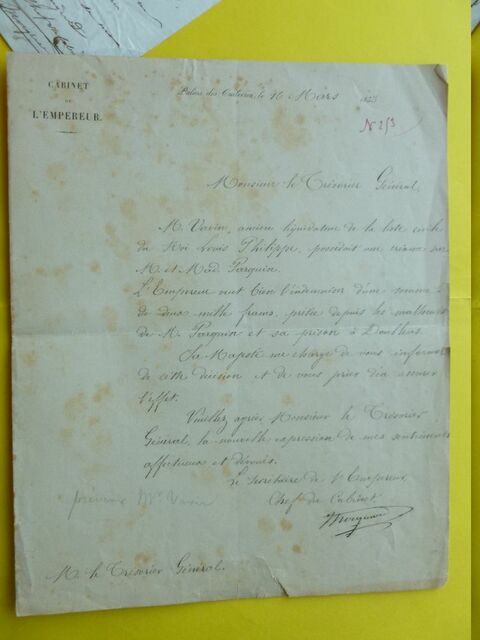 CABINET
DE
L'EMPEREUR.
Palais des Tuileries, le 16 Mars 1853
N 253
Monsieur le Trésorier Général,
M. Vavin, ancien liquidateur de la liste civile
du Roi Louis Philippe, possédait une créance sur
M. et Mad. Parquin.
L'Empereur veut bien l'indemniser d'une somme
de deux mille francs, prêtée depuis les malheurs
de M. Parquin et sa prison à Doullens.
Sa Majesté me charge de vous informer
de cette décision et de vous prier d'en assurer
l'effet.
Veuillez agréer Monsieur le Trésorier
Général, la nouvelle expression de mes sentiments
affectueux et dévoués.
Le Secrétaire de l'Empereur,
Chef du Cabinet.
prévenir Mr Vavin
M. le Trésorier Général.